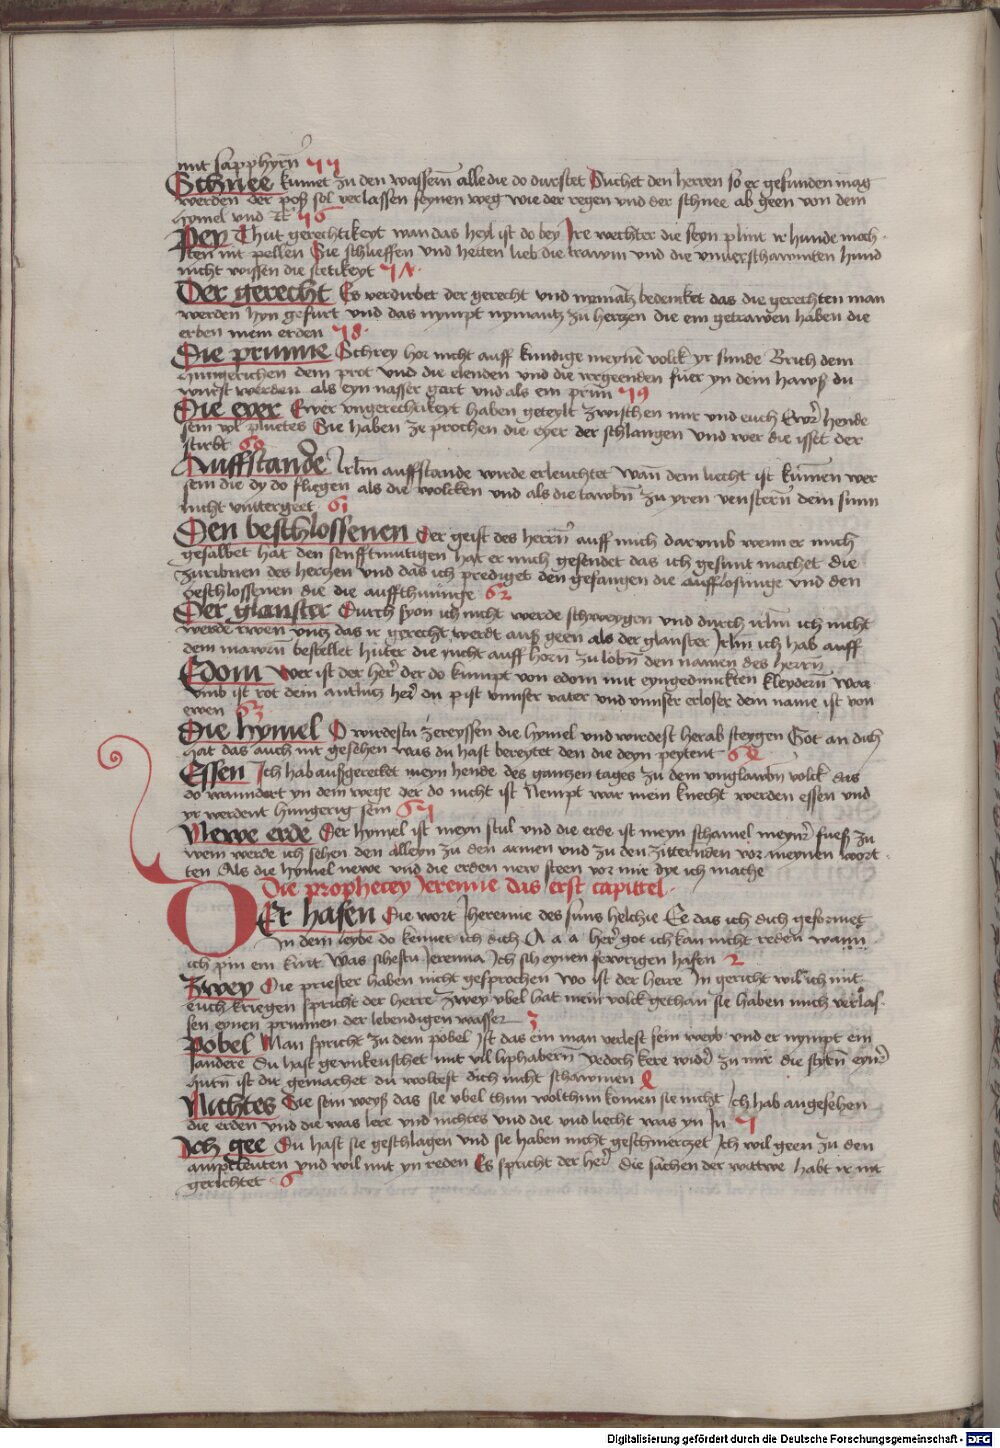 mit sapphyrn̄ 55
Schnee kumet zu den wassern̄ alle die do durstet Suchet den herren so er gefunden mag
werden der poß sol verlassen seynen weg wie der regen vnd der schnee ab geen von dem
hymel vnd ꝛc̄ 56
Pey Thut gerechtikeyt wan das heyl ist do bey Ire wechter die seyn plint ir hunde moch
ten nit pellen Sie schlieffen vnd hetten lieb die trawm vnd die vnuerschawmten hund
nicht wissen die setikeyt 57
Der gerecht Es verdirbet der gerecht vnd nymātz bedencket das die gerechten man
werden hyn gefurt vnd das nympt nymantz zu hertzen die ein getrawen haben die
erben mein erden 58
Die prunne Schrey hor nicht auff kundige meynē volck yr sunde Brich dem
hungerichen dem prot vnd die elenden vnd die irrgeenden fuer yn dein hawß du
wurst werden als eyn nasser gart vnd als ein prun̄ 59
Die eyer Ewer vngerechtikeyt haben geteylt zwischen mir vnd euch Ewr̄ hende
sein vol pluetes Sie haben ze prochen die eyer der schlangen vnd wer die isset der
stirbt 60
Auffstande Irl̄m auffstande wirde erleuchtet wan̄ dein liecht ist kumen wer
sein die dy do fliegen als die wolcken vnd als die tawbn̄ zu yren venstern̄ dein sunn
nicht vntergeet 61
Den beschlossenen Der geist des herrn̄ auff mich darvmb wenn er mich
gesalbet hat den senfftmutigen hat er mich gesendet das ich gesunt machet die
zuribnen des hertzen vnd das ich prediget den gefangen die aufflosunge vnd den
beschlossenen die die auffthuunge 62
Der glanster Durch syon ich nicht werde schweygen vnd durch irl̄m ich nicht
werde rwen vntz das ir gerecht werdt auß geen als der glanster Irl̄m ich hab auff
dein mawrn̄ bestellet hüter die nicht auff horn̄ zu lobn̄ den namen des herrn̄
Edom Wer ist der her̄ der do kumpt von edom mit eyngeduncketen kleydern̄ War
vmb ist rot dein antlutz her̄ du pist vnnser vater vnd vnnser erloser dein name ist von
ewen 63
Die hymel O wirdestu zereyssen die hymel vnd wirdest herab steygen Got an dich
hat das auch nit gesehen was du hast bereytet den die deyn peytent 64
Essen Ich hab außgerecket meyn hende des gantzen tages zu dem vnglawbn̄ volck das
do wanndert yn dem wege der do nicht ist Nempt war mein knecht werden essen vnd
yr werdent hungerig sein 65
Newe erde Der hymel ist meyn stul vnd die erde ist meyn schamel meynr̄ fueß zu
wem werde ich sehen den alleyn zu den armen vnd zu den zitternden vor meynen wort
ten Als die hymel newe vnd die erden new steen vor mir dye ich mache
Die prophecey Jeremie das erst capittel
Der hafen Die wort Iheremie des suns helchie Ee das ich dich geformet
In dem leybe do kennet ich dich A a a her̄ got ich kan nicht reden wann̄
ich pin ein kint Was sihestu Jeremia Ich sih eynen fewrigen hafen 2
Zwey Die priester haben nicht gesprochen wo ist der herre In gericht wil ich mit
euch kriegen spricht der herre zwey vbel hat mein volck gethan sie haben mich verlas
sen eynen prunnen der lebendigen wasser 3
Pobel Man spricht zu dem pobel Ist das ein man verlest sein weyb vnd er nympt ein
andere Du hast gevnkeuschet mit vil liphabern̄ Yedoch kere wider̄ zu mir die styrn̄ eyner̄
hurn̄ ist dir gemachet du woltest dich nicht schawmen 4
Nichtes Sie sein weyß das sie vbel thun wolthun konen sie nicht Ich hab angesehen
die erden vnd die was lere vnd nichtes vnd die vnd liecht was yn In 5
Ich gee Du hast sie geschlagen vnd sie haben nicht geschmertzet Ich wil geen zu den
amptleuten vnd wil mit yn reden Es spricht der her̄ die sachen der wittwe habt ir nit
gerichtet 6
Digitalisierung gefördert durch die Deutsche Forschungsgemeinschaft - DFG